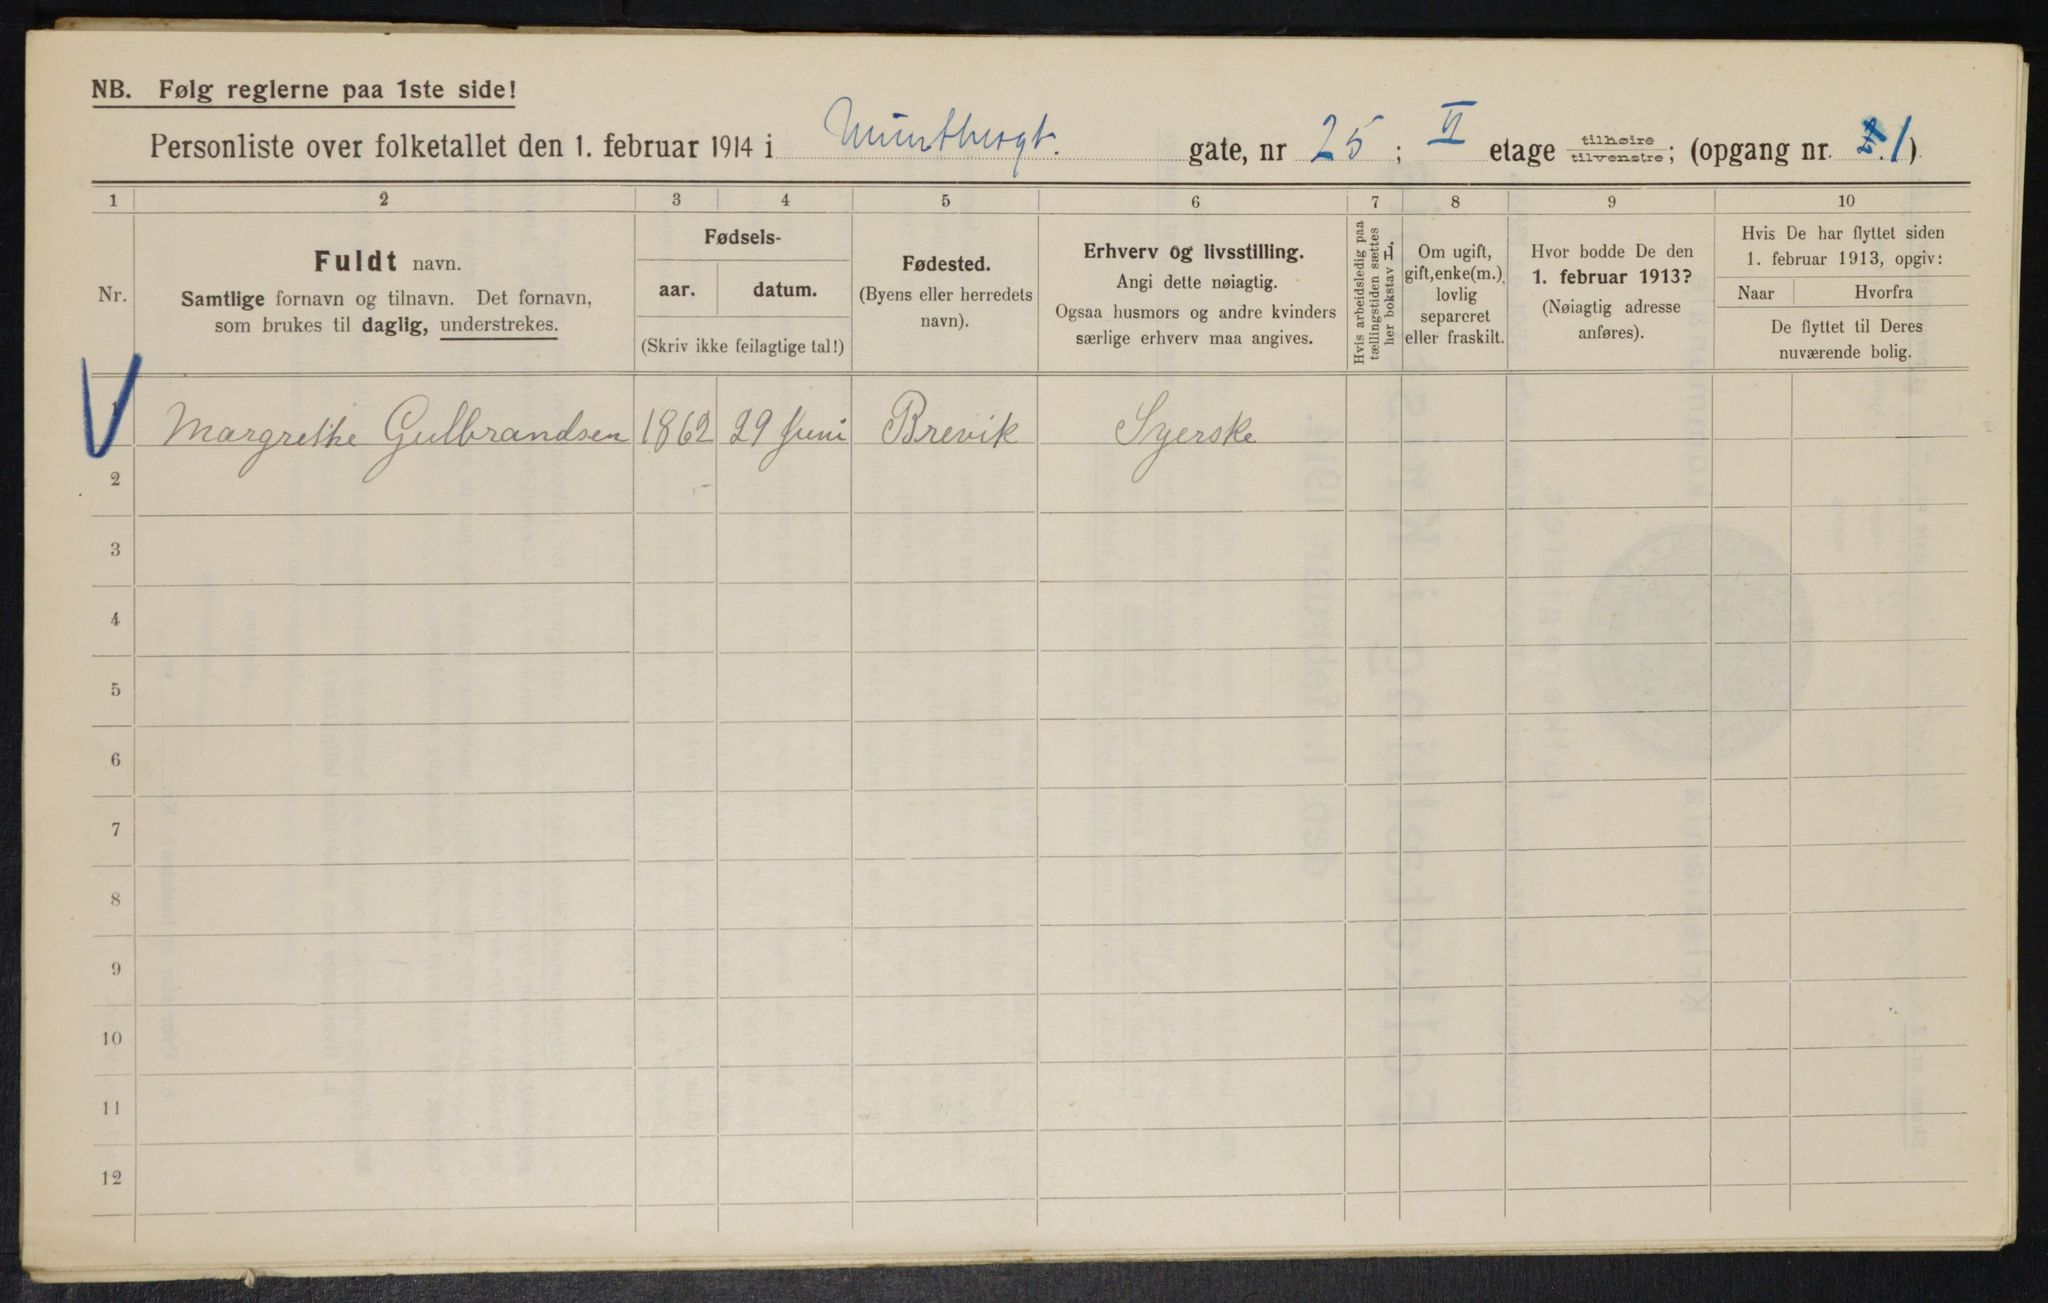 NB. Følg reglerne paa 1ste side!
Personliste over folketallet den 1. februar 1914 i Munthesgt. gate, nr 25; II etage tilhøire / tilvenstre; (opgang nr. 1)
1 2 3 4 5 6 7 8 9 10
Nr.
Fuldt navn.
Samtlige fornavn og tilnavn. Det fornavn,
som brukes til daglig, understrekes.
Fødsels-
aar. datum.
(Skriv ikke feilagtige tal!)
Fødested.
(Byens eller herredets
navn).
Erhverv og livsstilling.
Angi dette nøiagtig.
Ogsaa husmors og andre kvinders
særlige erhverv maa angives.
Hvis arbeidsledig paa
tællingstiden sættes
her bokstav L.
Om ugift,
gift, enke(m.),
lovlig
separeret
eller fraskilt.
Hvor bodde De den
1. februar 1913?
(Nøiagtig adresse
anføres).
Hvis De har flyttet siden
1. februar 1913, opgiv:
Naar Hvorfra
De flyttet til Deres
nuværende bolig.
1 Margrethe Gulbrandsen 1862 29 Juni Brevik Syerske
2
3
4
5
6
7
8
9
10
11
12